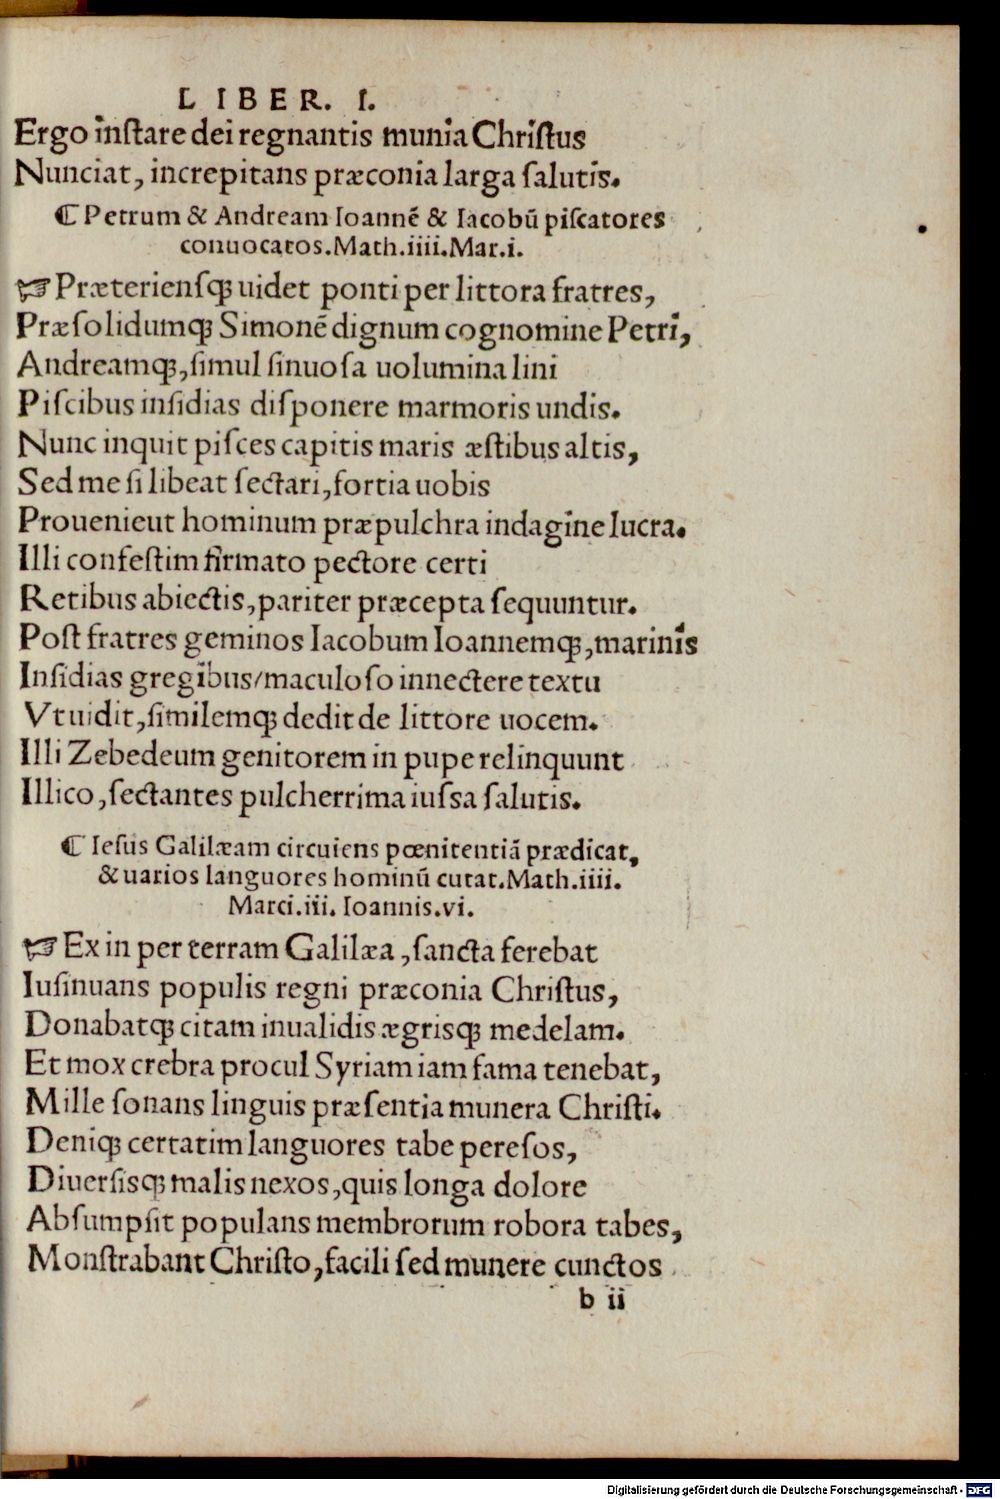 LIBER. I.
Ergo instare dei regnantis munia Christus
Nunciat, increpitans præconia larga salutis.
⁋ Petrum & Andream Ioannē & Iacobū piscatores
conuocatos. Math. iiii. Mar. i.
☞ Præteriensq; uidet ponti per littora fratres,
Præsolidumq; Simonē dignum cognomine Petri,
Andreamq;, simul sinuosa uolumina lini
Piscibus insidias disponere marmoris undis.
Nunc inquit pisces capitis maris æstibus altis,
Sed me si libeat sectari, fortia uobis
Prouenieut hominum præpulchra indagine lucra.
Illi confestim firmato pectore certi
Retibus abiectis, pariter præcepta sequuntur.
Post fratres geminos Iacobum Ioannemq;, marinis
Insidias gregibus/maculoso innectere textu
Vt uidit, similemq; dedit de littore uocem.
Illi Zebedeum genitorem in pupe relinquunt
Illico, sectantes pulcherrima iussa salutis.
⁋ Iesus Galilæam circuiens pœnitentiā prædicat,
& uarios languores hominū curat. Math. iiii.
Marci. iii. Ioannis. vi.
☞ Ex in per terram Galilæa, sancta ferebat
Iusinuans populis regni præconia Christus,
Donabatq; citam inualidis ægrisq; medelam.
Et mox crebra procul Syriam iam fama tenebat,
Mille sonans linguis præsentia munera Christi.
Deniq; certatim languores tabe peresos,
Diuersisq; malis nexos, quis longa dolore
Absumpsit populans membrorum robora tabes,
Monstrabant Christo, facili sed munere cunctos
b ii
Digitalisierung gefördert durch die Deutsche Forschungsgemeinschaft - DFG